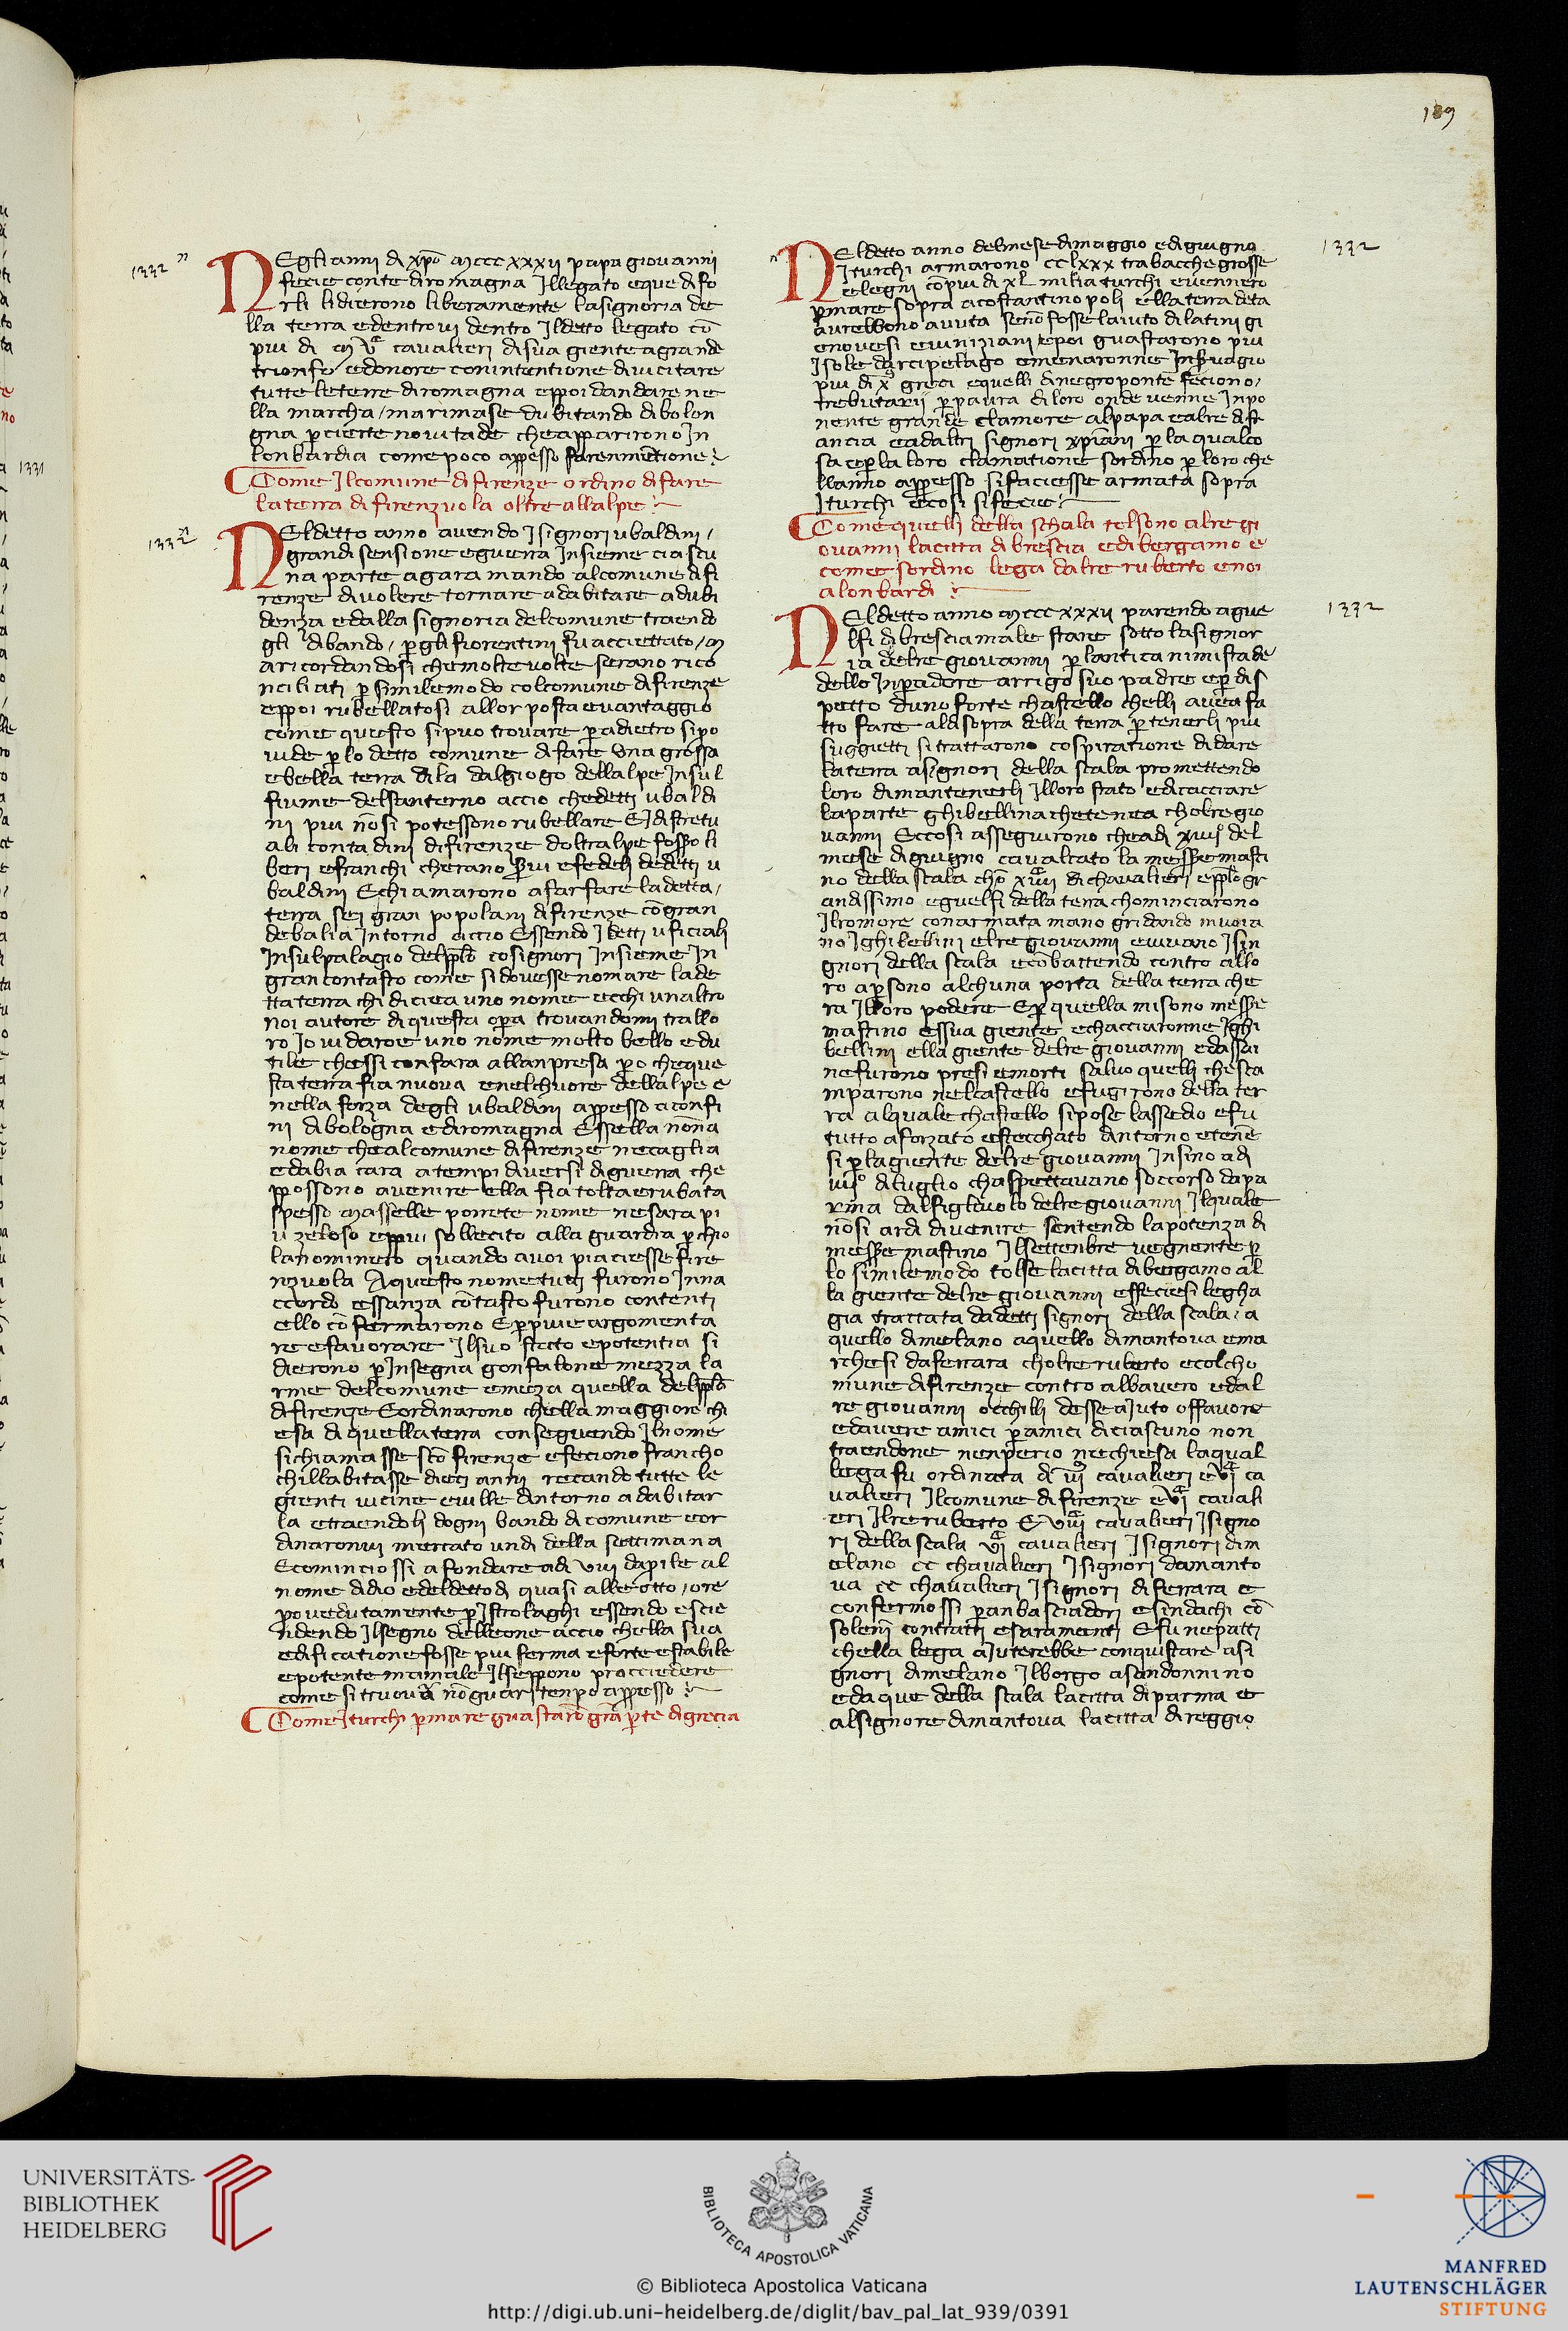 189
1332
NEgli anni di xpō Mcccxxxij papa giovanni
feciē conte diromagna Illegato eque difo
rli lidierono liberamente lasignoria de
lla terra edentrovi dentro Ildetto legato cō
piu di M vͨ cavalieri disua giente agrande
trionfo edonore conintentione divicitare
tutte leterre diromagna eppoi dandare ne
lla marcha / marimase dubitando dibolon
gna p cierte novitade cheapparirono In
lonbardia come poco appresso farenmētione
Come Ilcomune difirenze ordino difare
laterra difirenzuola oltre allalpe
1332
NEldetto anno avendo Isignori ubaldini /
grandi sensione eguerra Insieme ciascu
na parte agara mando alcomune difi
renze divolere tornare adabitare adubi
denza edalla signoria delcomune traendo
gli dibando / p gli fiorentini fu acciettato / M
aricordandosi chemolte volte serano rico
nciliati p similemodo colcomune difirenze
eppoi rubellatosi allor posta evantaggio
come questo sipuo trovare p adietro sipo
vide p lo detto comune difare Una grossa
ebella terra dila dalgiogo dellalpe Insul
fiume delsanterno accio chedetti ubaldi
ni piu nōsi potessono rubellare E Idistretu
ali contadini difirenze doltralpe fosso li
beri efranchi cherano s̄vi efedeli dedetti u
baldini Echiamarono afarfare ladetta /
terra sei gran popolani difirenze cō gran
debalia Intorno accio Essendo Idetti uficiali
Insulpalagio delpplō cosignori Insieme In
gran contasto come sidovesse nomare lade
tta terra chi diciea uno nome echhi unaltro
noi autore diquesta opa trovandomi trallo
ro Io vidaroe uno nome molto bello edu
tile chessi confara allanpresa po cheque
sta terra fia nuova enelchuore dellalpe e
nella forza degli ubaldini appresso aconfi
ni dibologna ediromagna Essella nōna
nome chealcomune difirenze necaglia
edabia cara atempi diversi diguerra che
ppossono avenire ella fia tolta erubata
spesso Masselle porrete nome nesara pi
u zeloso eppiu sollecito alla guardia p chio
lanominero quando avoi piaciesse fire
nzuola Aquesto nome tutti furono Inna
ccordo essanza cōtasto furono contenti
ello cōfermarono Eppiue argomenta
re efavorare Ilsuo stato epotentia si
dierono p Insegna gonfalone mezza la
rme delcomune emeza quella delpplō
difirenze Eordinarono chella maggiore chi
esa diquella terra conseguendo Ilnome
sichiamasse scō firenze efeciono francho
chillabitasse dieci anni recando tutte le
gienti vicine eville dintorno adabitar
la etraendoli dogni bando dicomune eor
dinaronvi mercato undi della settimana
Ecomincio ssi afondare adi viii daprile al
nome didio edeldetto dì quasi alle otto / ore
provedutamente p Istrolaghi essendo escie
ndendo Ilsegno delleone accio chella sua
edificatione fosse piu ferma eforte estabile
epotente
come si truovā nō guari tenpo appresso
Come Iturchi p mare guastarō grā pte digrecia
1332
NEldetto anno delmese dimaggio edigiugno
Iturchi armarono cclxxx trabacche grosse
elegni cō piu di xl milia turchi evennero
p mare sopra acostantinopoli ella terra deta
aurebbono avuta senō fosse laiuto dilatini gi
enovesi eviniziani epoi guastarono piu
Isole darcipelago emenaronne Inservagio
piu di xͫ greci equelli dinegroponte feciono /
trebutarij p paura diloro onde venne Inpo
nente grande clamore alpapa ealre difr
ancia eadaltri signori xpiani p la qualco
sa ep la loro clamatione sordino p loro che
llanno appresso sifaciesse armata sopra
Iturchi ecosi sifecie
Come quelli della schala tolsono alre gi
ovanni lacitta dibrescia edibergamo e
come sordino lega dalre ruberto enoi
alonbardi
1332
NEldetto anno Mcccxxxij parendo ague
lfi dibrescia male stare sotto lasignor
ia delre giovanni p lantica nimistade
dello Inpadore arrigo suo padre ep dis
petto duno forte chastello chelli avea fa
tto fare aldisopra della terra p tenerli piu
suggietti si trattarono cospiratione didare
laterra asignori della scala promettendo
loro dimantenerli Illoro stato edicacciare
laparte ghibellina chetenea cholregio
vanni Eccosi asseguirono cheadi xiiijº del
mese digiugno cavalcato la messere masti
no della scala chō dichavalieri epplō gr
andissimo eguelfi della terra chominciarono
Ilromore conarmata mano gridando muoia
no Ighibellini elre giovanni evivano Isin
gnori della scala ecōbattendo contro allo
ro apsono alchuna porta della terra che
ra Illoro podere Ep quella misono messere
mastino essua giente echacciaronne Ighi
bellini ella giente delre giovanni edassai
nefurono presi emorti salvo quelli chesca
mparono nelcastello efugirono della ter
ra alquale chastello sipose lassedio efu
tutto aforzato estecchato dintorno etene
si p lagiente delre giovanni Insino adi
iiijº diluglio chaspettavano soccorso dapa
rma dalfigliuolo delre giovanni Ilquale
nōsi ardi divenire sentendo lapotenza di
messere mastino Ilsettenbre vegnente p
lo similemodo tolse lacitta dibergamo al
la giente delre giovanni effeciesi legha
gia trattata dadetti signori della scala / a
quello dimelano aquello dimantova ema
rchesi daferrara cholre ruberto ecolcho
mune difirenze contro albavero edal
re giovanni occhilli desse aiuto offavore
edavere amici p amici diciascuno non
traendone nenperio nechiesa laqual
lega fu ordinata di cavalieri ca
valieri Ilcomune difirenze cavali
eri Ilre ruberto E cavalieri Isigno
ri della scala cavalieri Isignori dim
elano cc chavalieri Isignori damanto
va cc chavalieri Isignori diferrara e
confermossi p anbasciadori esindachi cō
soleni contratti esaramenti Efu nepatti
chella lega aiuterebbe conquistare asi
gnori dimelano Ilborgo asandonnino
edaque della scala lacitta diparma e
alsignore dimantova lacitta direggio
UNIVERSITÄTS-
BIBLIOTHEK
HEIDELBERG
BIBLIOTECA APOSTOLICA VATICANA
MANFRED
LAUTENSCHLÄGER
STIFTUNG
© Biblioteca Apostolica Vaticana
http://digi.ub.uni-heidelberg.de/diglit/bav_pal_lat_939/0391